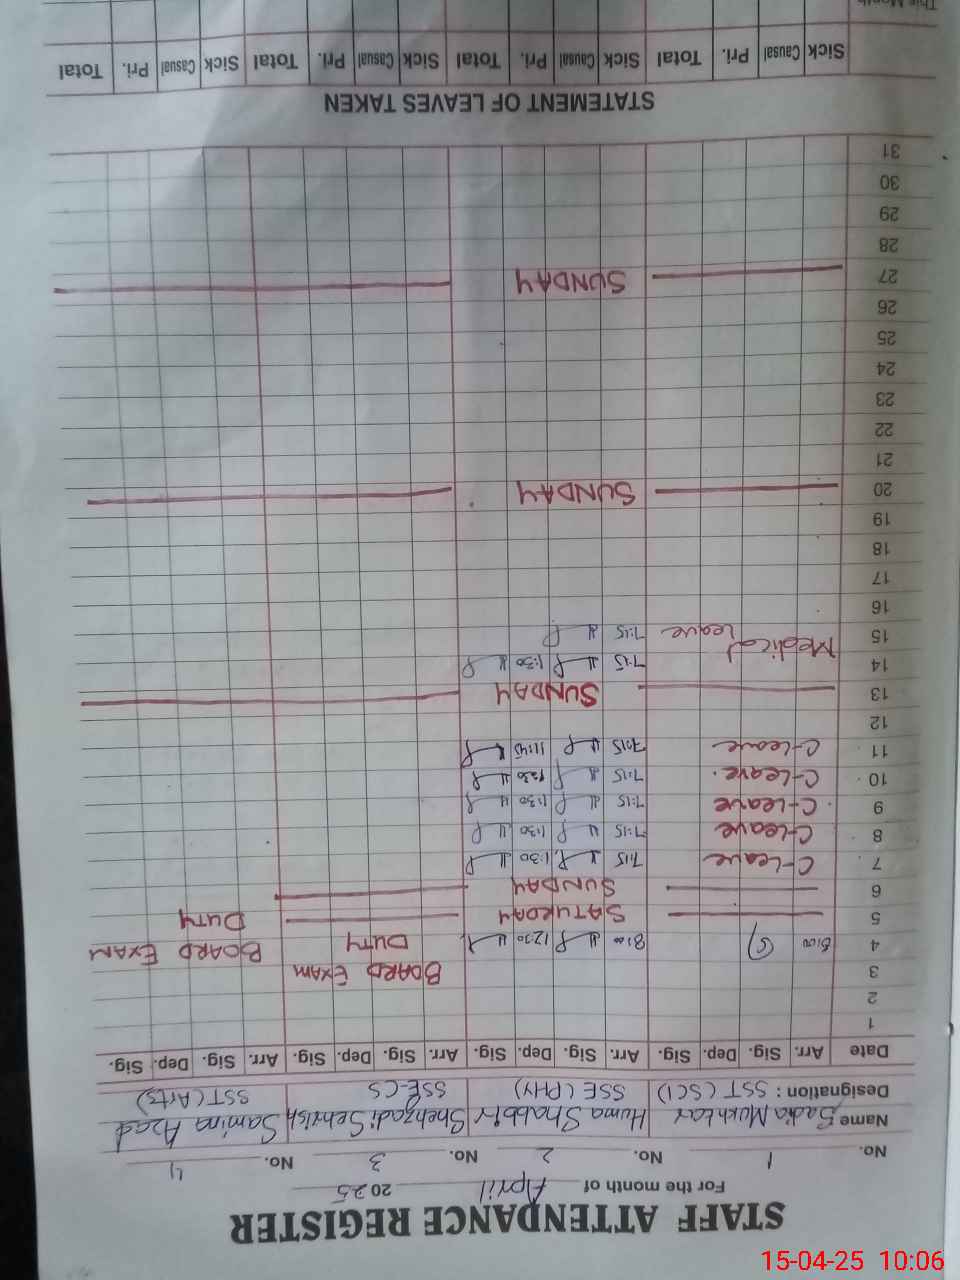 STAFF ATTENDANCE REGISTER
For the month of April 2025
No. 1 No. 2 No. 3 No. 4
Name Sadia Mukhtar Huma Shabbir Shehzadi Sehrish Samina Azad
Designation : SST (SCI) SSE (PHY) SSE-CS SST (Arts)
Date Arr. Sig. Dep. Sig. Arr. Sig. Dep. Sig. Arr. Sig. Dep. Sig. Arr. Sig. Dep. Sig.
1
2
3 BOARD EXAM
4 8:00 8:00 12:30 DUTY BOARD EXAM
5 SATURDAY DUTY
6 SUNDAY
7 C-Leave 7:15 1:30
8 C-Leave 7:15 1:30
9 C-Leave 7:15 1:30
10 C-Leave. 7:15 1:30
11 C-Leave 7:15 11:45
12
13 SUNDAY
14 Medical 7:15 1:30
15 Leave 7:15
16
17
18
19
20 SUNDAY
21
22
23
24
25
26
27 SUNDAY
28
29
30
31
STATEMENT OF LEAVES TAKEN
Sick Causal Pri. Total Sick Causal Pri. Total Sick Casual Pri. Total Sick Casual Pri. Total
This Month
15-04-25 10:06